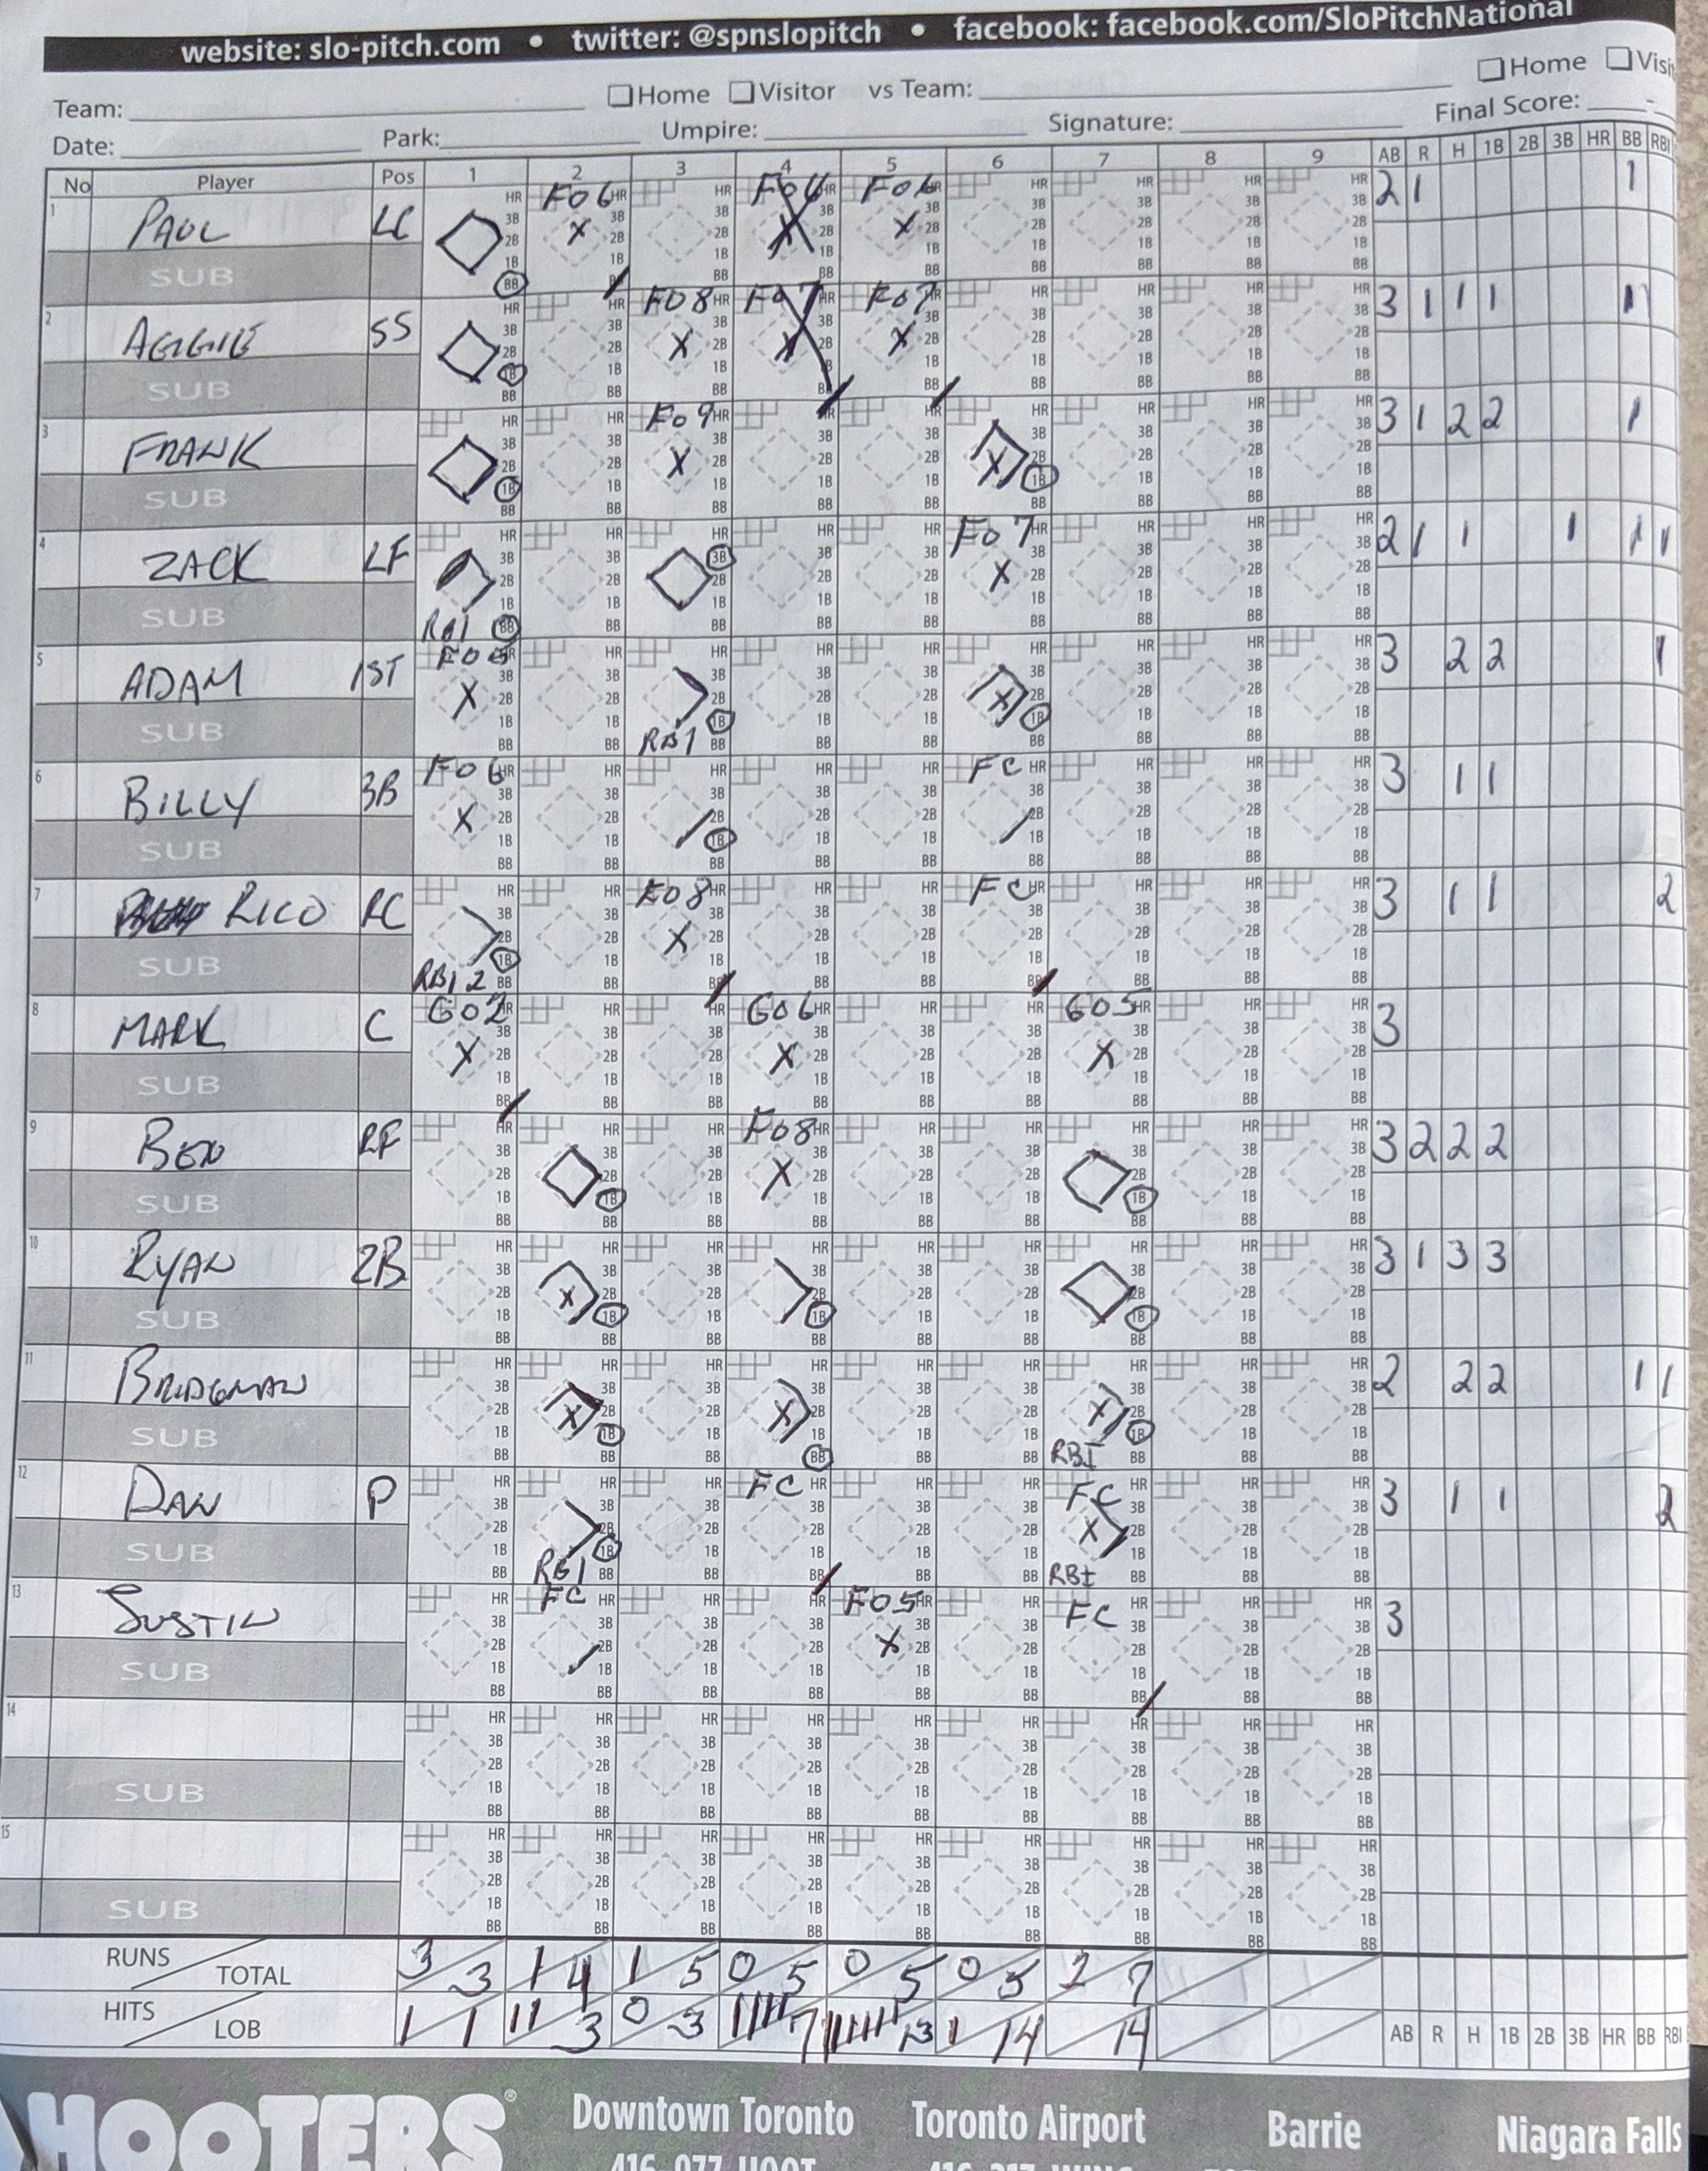 website: slo-pitch.com • twitter: @spnslopitch • facebook: facebook.com/SloPitchNational
Team: Home Visitor vs Team: Home Visi
Date: Park: Umpire: Signature: Final Score: -
No Player Pos 1 2 3 4 5 6 7 8 9 AB R H 1B 2B 3B HR BB RBI
1 PAUL LC FO6 FO6 FO6 2 1 1
SUB
2 AGGIE SS FO8 FO7 FO7 3 1 1 1 1
SUB
3 FRANK FO9 3 1 2 2 1
SUB
4 ZACK LF FO7 2 1 1 1 1 1
SUB RBI
5 ADAM 1ST 3 2 2 1
SUB RBI
6 BILLY 3B FO6 FC 3 1 1
SUB
7 RICO RC FO8 FC 3 1 1 2
SUB RBI 2
8 MARK C GO2 GO6 GO5 3
SUB
9 BEN RF FO8 3 2 2 2
SUB
10 RYAN 2B 3 1 3 3
SUB
11 BRIDGMAN 2 2 2 1 1
SUB RBI
12 DAN P FC FC 3 1 1 2
SUB RBI RBI
13 JUSTIN FC FO5 FC 3
SUB
14
SUB
15
SUB
RUNS TOTAL 3 3 1 4 1 5 0 5 0 5 0 5 2 7
HITS LOB 1 1 11 3 0 3 7 13 1 14 14 AB R H 1B 2B 3B HR BB RBI
HOOTERS® Downtown Toronto Toronto Airport Barrie Niagara Falls